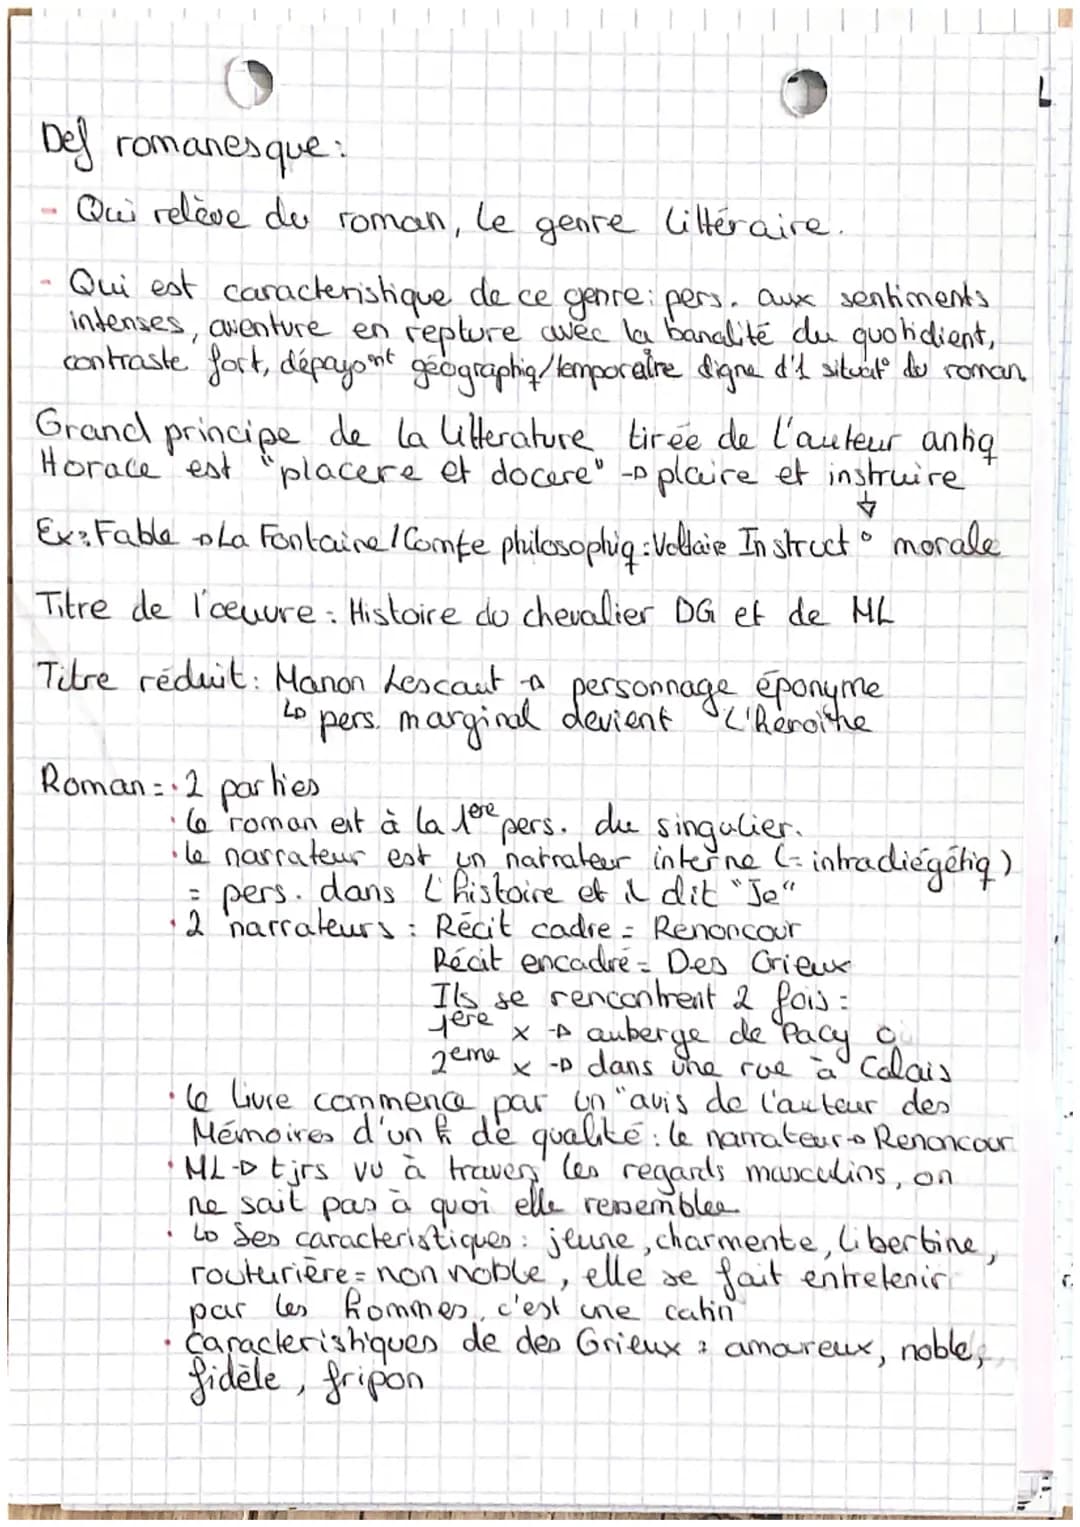 L
Def romanesque :
- Qui relève du roman, le genre littéraire.
- Qui est caracteristique de ce genre : pers. aux sentiments
intenses, aventure en repture avec la banalité du quotidient,
contraste fort, dépayont géographiq/temporelre digne d'1 situat° du roman
Grand principe de la litterature tirée de l'auteur antiq
Horace est "placere et docere" → plaire et instruire
↓
Ex : Fable → La Fontaine / Comte philosophiq : Voltaire Instruct° morale
Titre de l'œuvre : Histoire do chevalier DG et de ML
Titre réduit : Manon Lescaut → personnage éponyme
↳ pers. marginal devient L'héroïne
Roman = · 2 parties
· le roman est à la 1ère pers. du singulier.
· le narrateur est un narrateur interne (= intradiégétiq)
= pers. dans l'histoire et il dit "Je"
· 2 narrateurs : Récit cadre = Renoncour
Récit encadré = Des Grieux
Ils se rencontrent 2 fois :
1ère x → auberge de Pacy
2eme x → dans une rue à Calais
· le livre commence par un "avis de l'auteur des
Mémoires d'un h de qualité : le narrateur → Renoncour
· ML → tjrs vu à travers les regards masculins, on
ne sait pas à quoi elle ressemblee
· ↳ Ses caracteristiques : jeune, charmente, libertine,
routurière = non noble, elle se fait entretenir
par les hommes, c'est une catin
· Caracteristiques de des Grieux : amoureux, noble,
fidèle, fripon